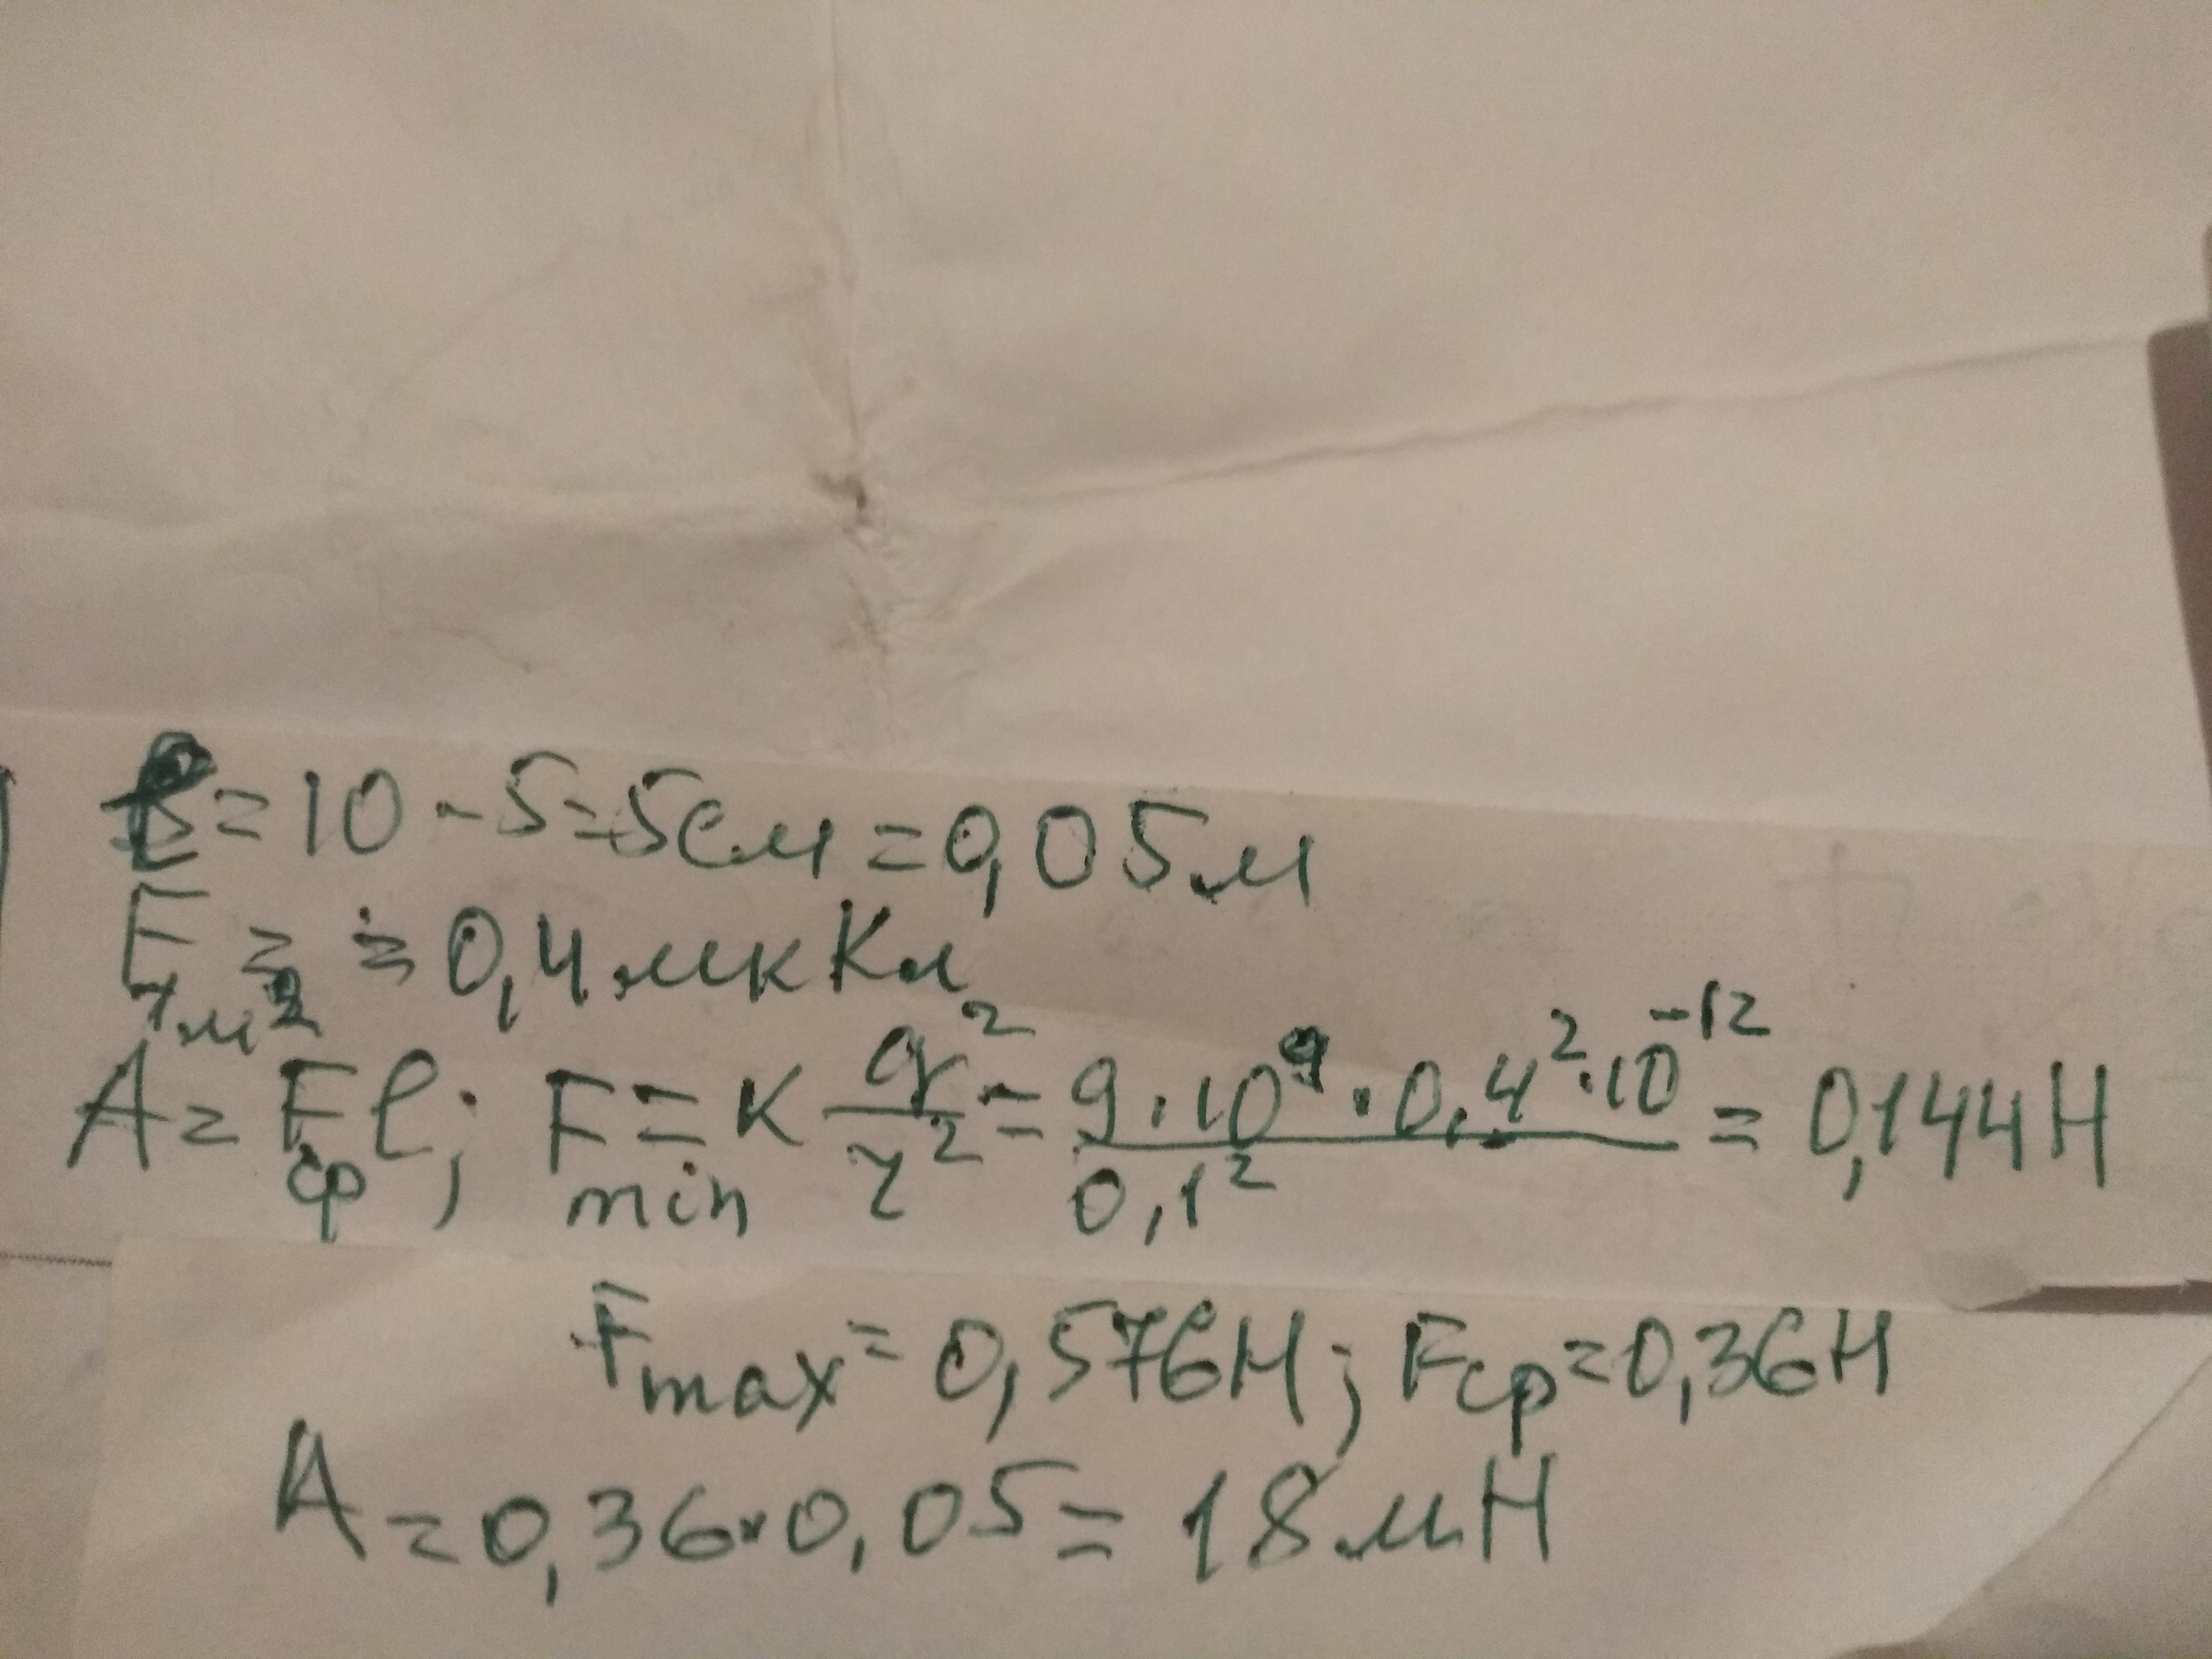 ℓ = 10 - 5 = 5 см = 0,05 м
= 0,4 мкКл
A = Fср ℓ; Fmin = K q²/r² = 9·10⁹·0,4²·10⁻¹²/0,1² = 0,144 Н
Fmax = 0,576 Н; Fср = 0,36 Н
A = 0,36·0,05 = 18 мН